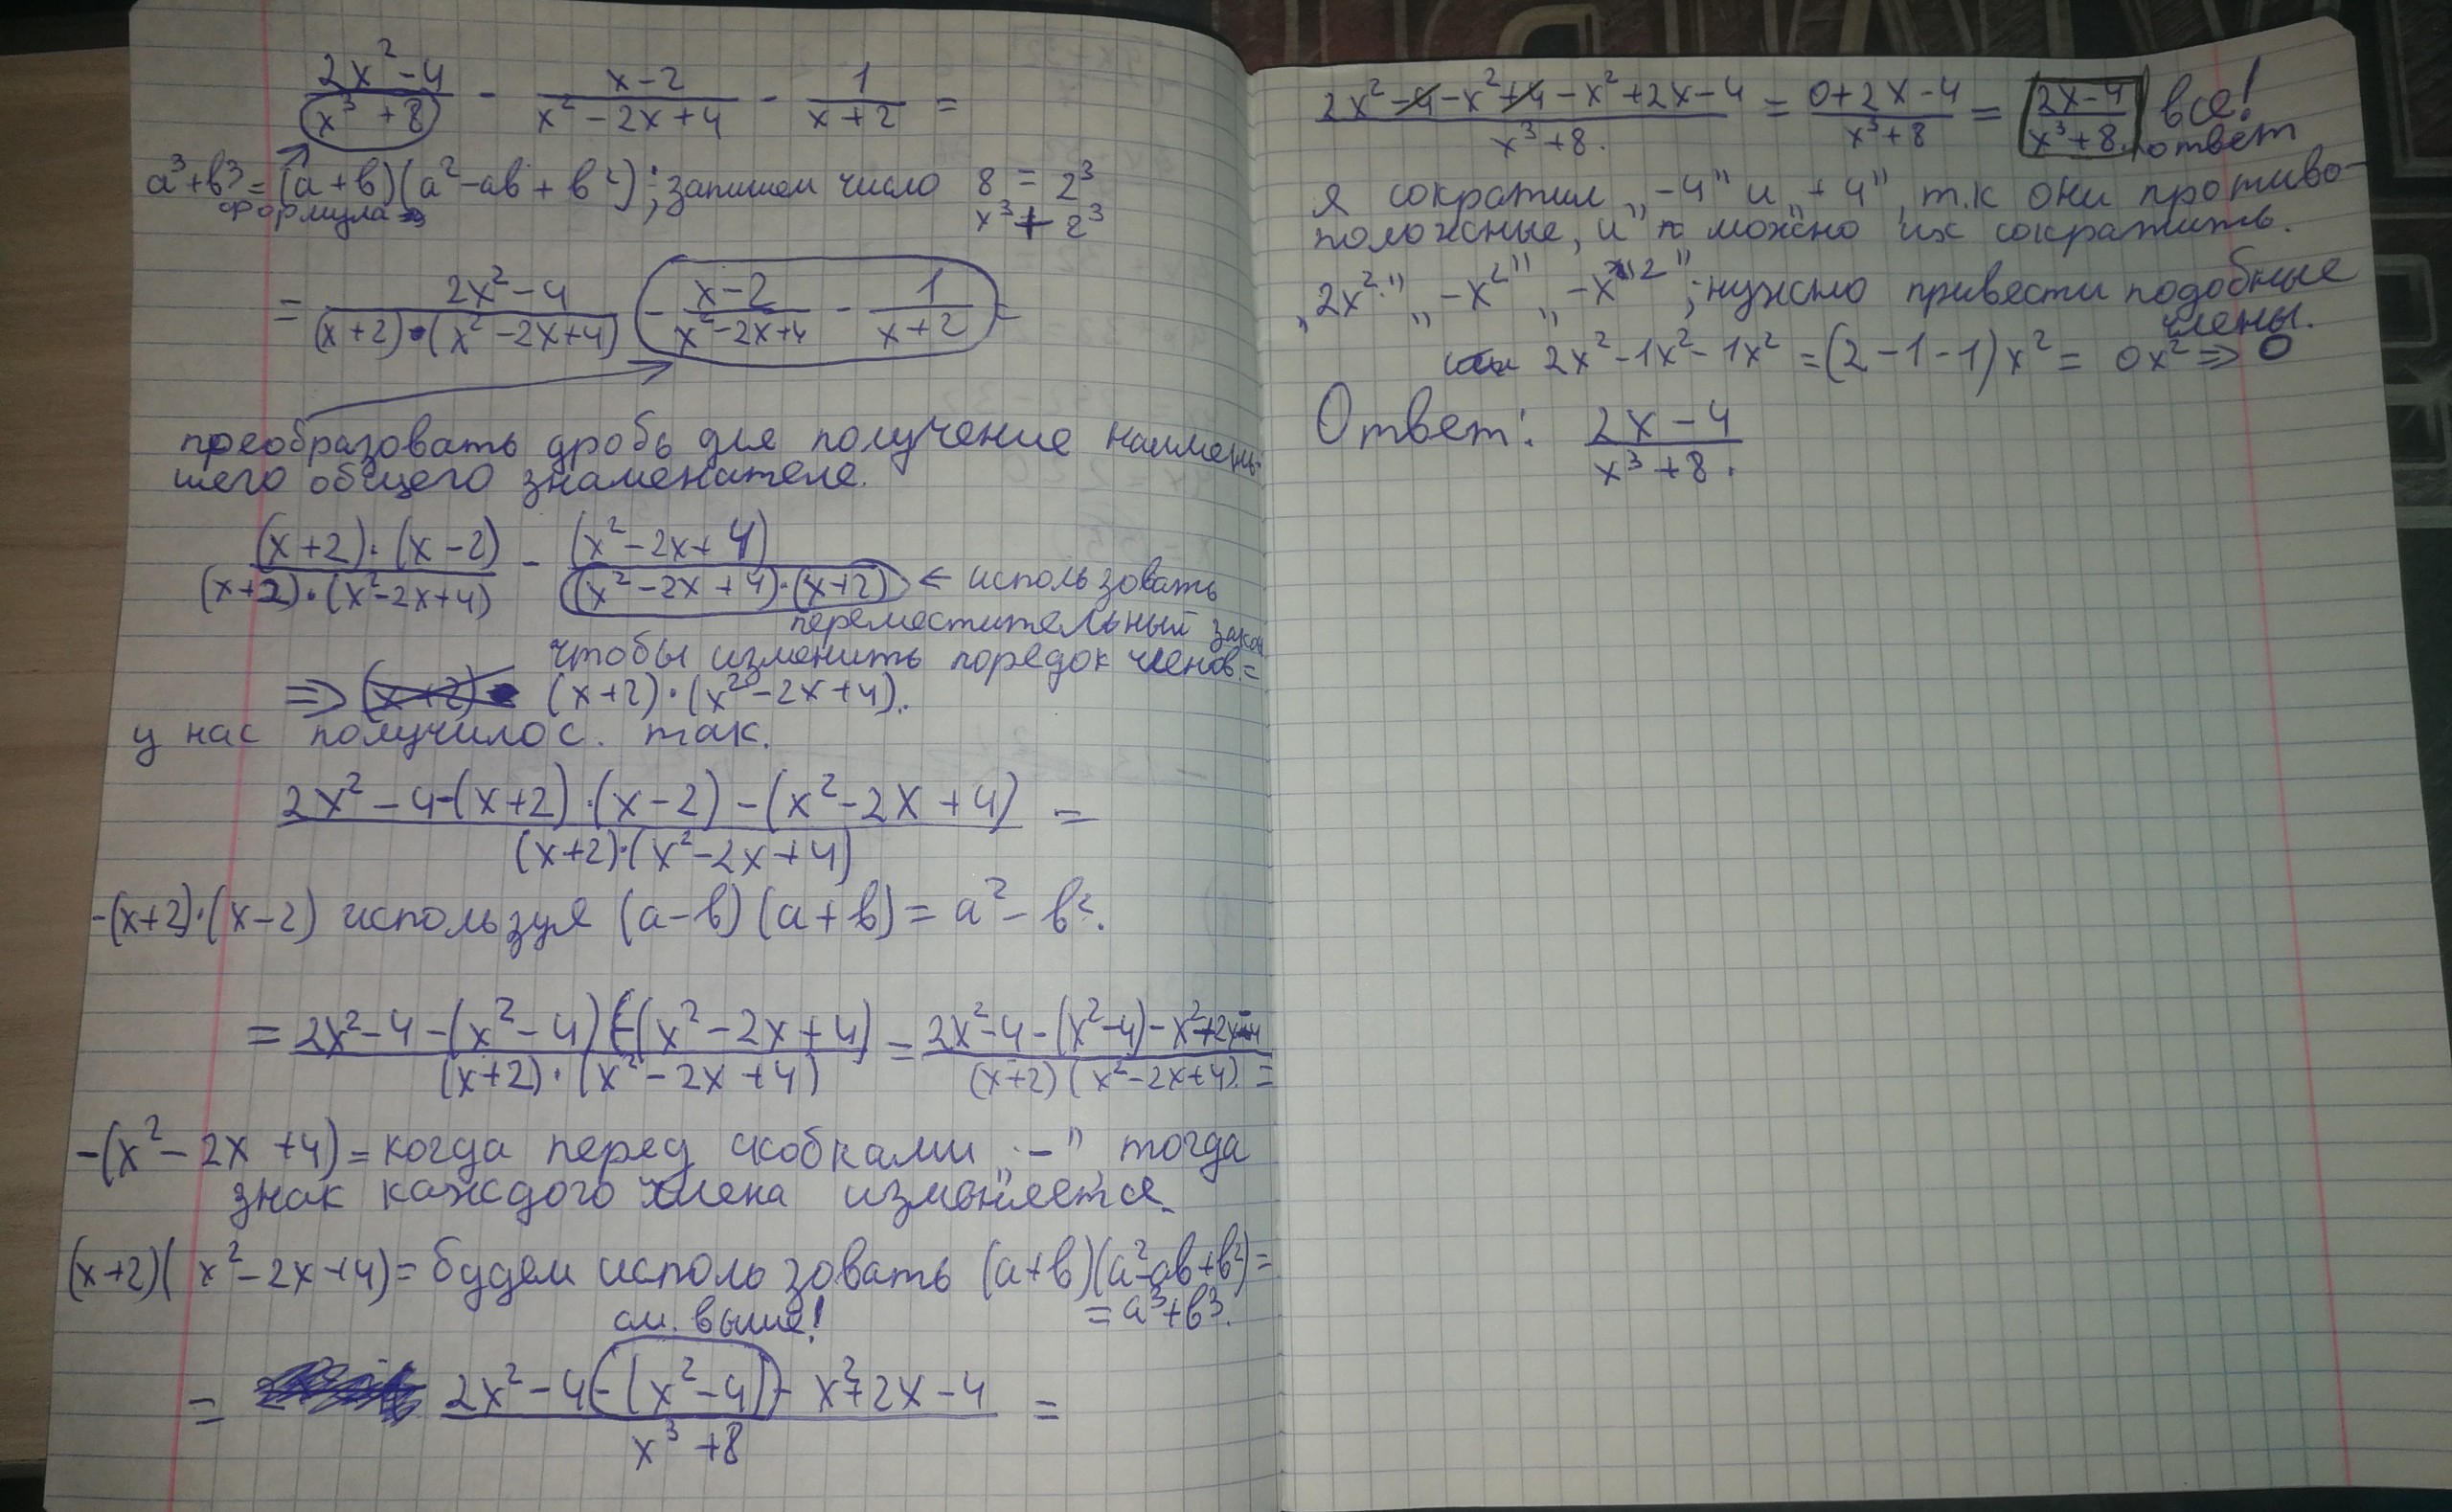 (2x² - 4)/(x³ + 8) - (x - 2)/(x² - 2x + 4) - 1/(x + 2) =
a³ + b³ = (a + b)(a² - ab + b²); запишем число 8 = 2³
формула x³ + 2³
= (2x² - 4)/((x + 2)·(x² - 2x + 4)) - (x - 2)/(x² - 2x + 4) - 1/(x + 2) =
преобразовать дробь для получение наимень-
шего общего знаменателе.
((x + 2)·(x - 2))/((x + 2)·(x² - 2x + 4)) - (x² - 2x + 4)/((x² - 2x + 4)·(x + 2)) ← использовать
переместительный закон
чтобы изменить порядок членов =
⇒ (x + 2)·(x² - 2x + 4).
у нас получилос. так.
(2x² - 4 - (x + 2)·(x - 2) - (x² - 2x + 4))/((x + 2)·(x² - 2x + 4)) =
-(x + 2)·(x - 2) используя (a - b)(a + b) = a² - b².
= (2x² - 4 - (x² - 4) - (x² - 2x + 4))/((x + 2)·(x² - 2x + 4)) = (2x² - 4 - (x² - 4) - x² + 2x - 4)/((x + 2)(x² - 2x + 4)) =
-(x² - 2x + 4) = когда перед скобками „-" тогда
знак каждого члена изменяется.
(x + 2)(x² - 2x + 4) = будем использовать (a + b)(a² - ab + b²) =
см. выше! = a³ + b³.
= (2x² - 4 - (x² - 4) - x² + 2x - 4)/(x³ + 8) =
(2x² - 4 - x² + 4 - x² + 2x - 4)/(x³ + 8) = (0 + 2x - 4)/(x³ + 8) = (2x - 4)/(x³ + 8) все!
ответ
я сократил „-4" и „+4", т.к они противо-
положные, и можно их сократить.
„2x²" „-x²" „-x²"; нужно привести подобные
члены.
2x² - 1x² - 1x² = (2 - 1 - 1)x² = 0x² ⇒ 0
Ответ: (2x - 4)/(x³ + 8).